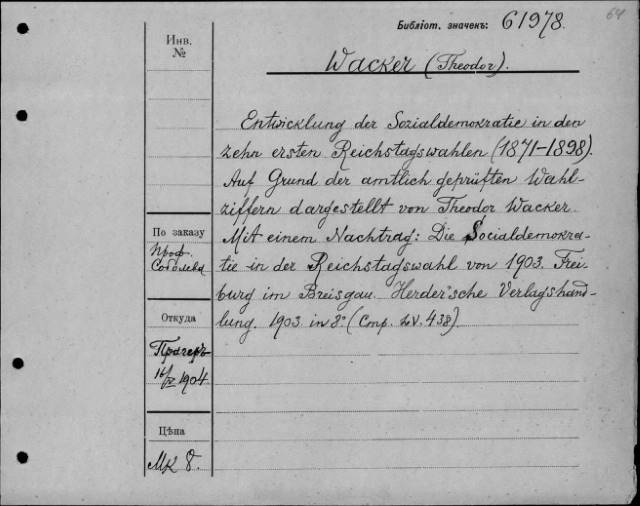 64
Библіот. значекъ: 61978.
Инв.
№
Wacker (Theodor).
Entwicklung der Sozialdemokratie in den
zehn ersten Reichstagswahlen (1871-1898).
Auf Grund der amtlich geprüften Wahl-
ziffern dargestellt von Theodor Wacker.
Mit einem Nachtrag: Die Socialdemokra-
tie in der Reichstagswahl von 1903. Frei-
burg im Breisgau. Herder'sche Verlagshand-
lung. 1903. in 8º (Стр. LV. 438).
По заказу
Проф.
Соболева
Откуда
Прагеръ
1904
Цѣна
Мк 8.